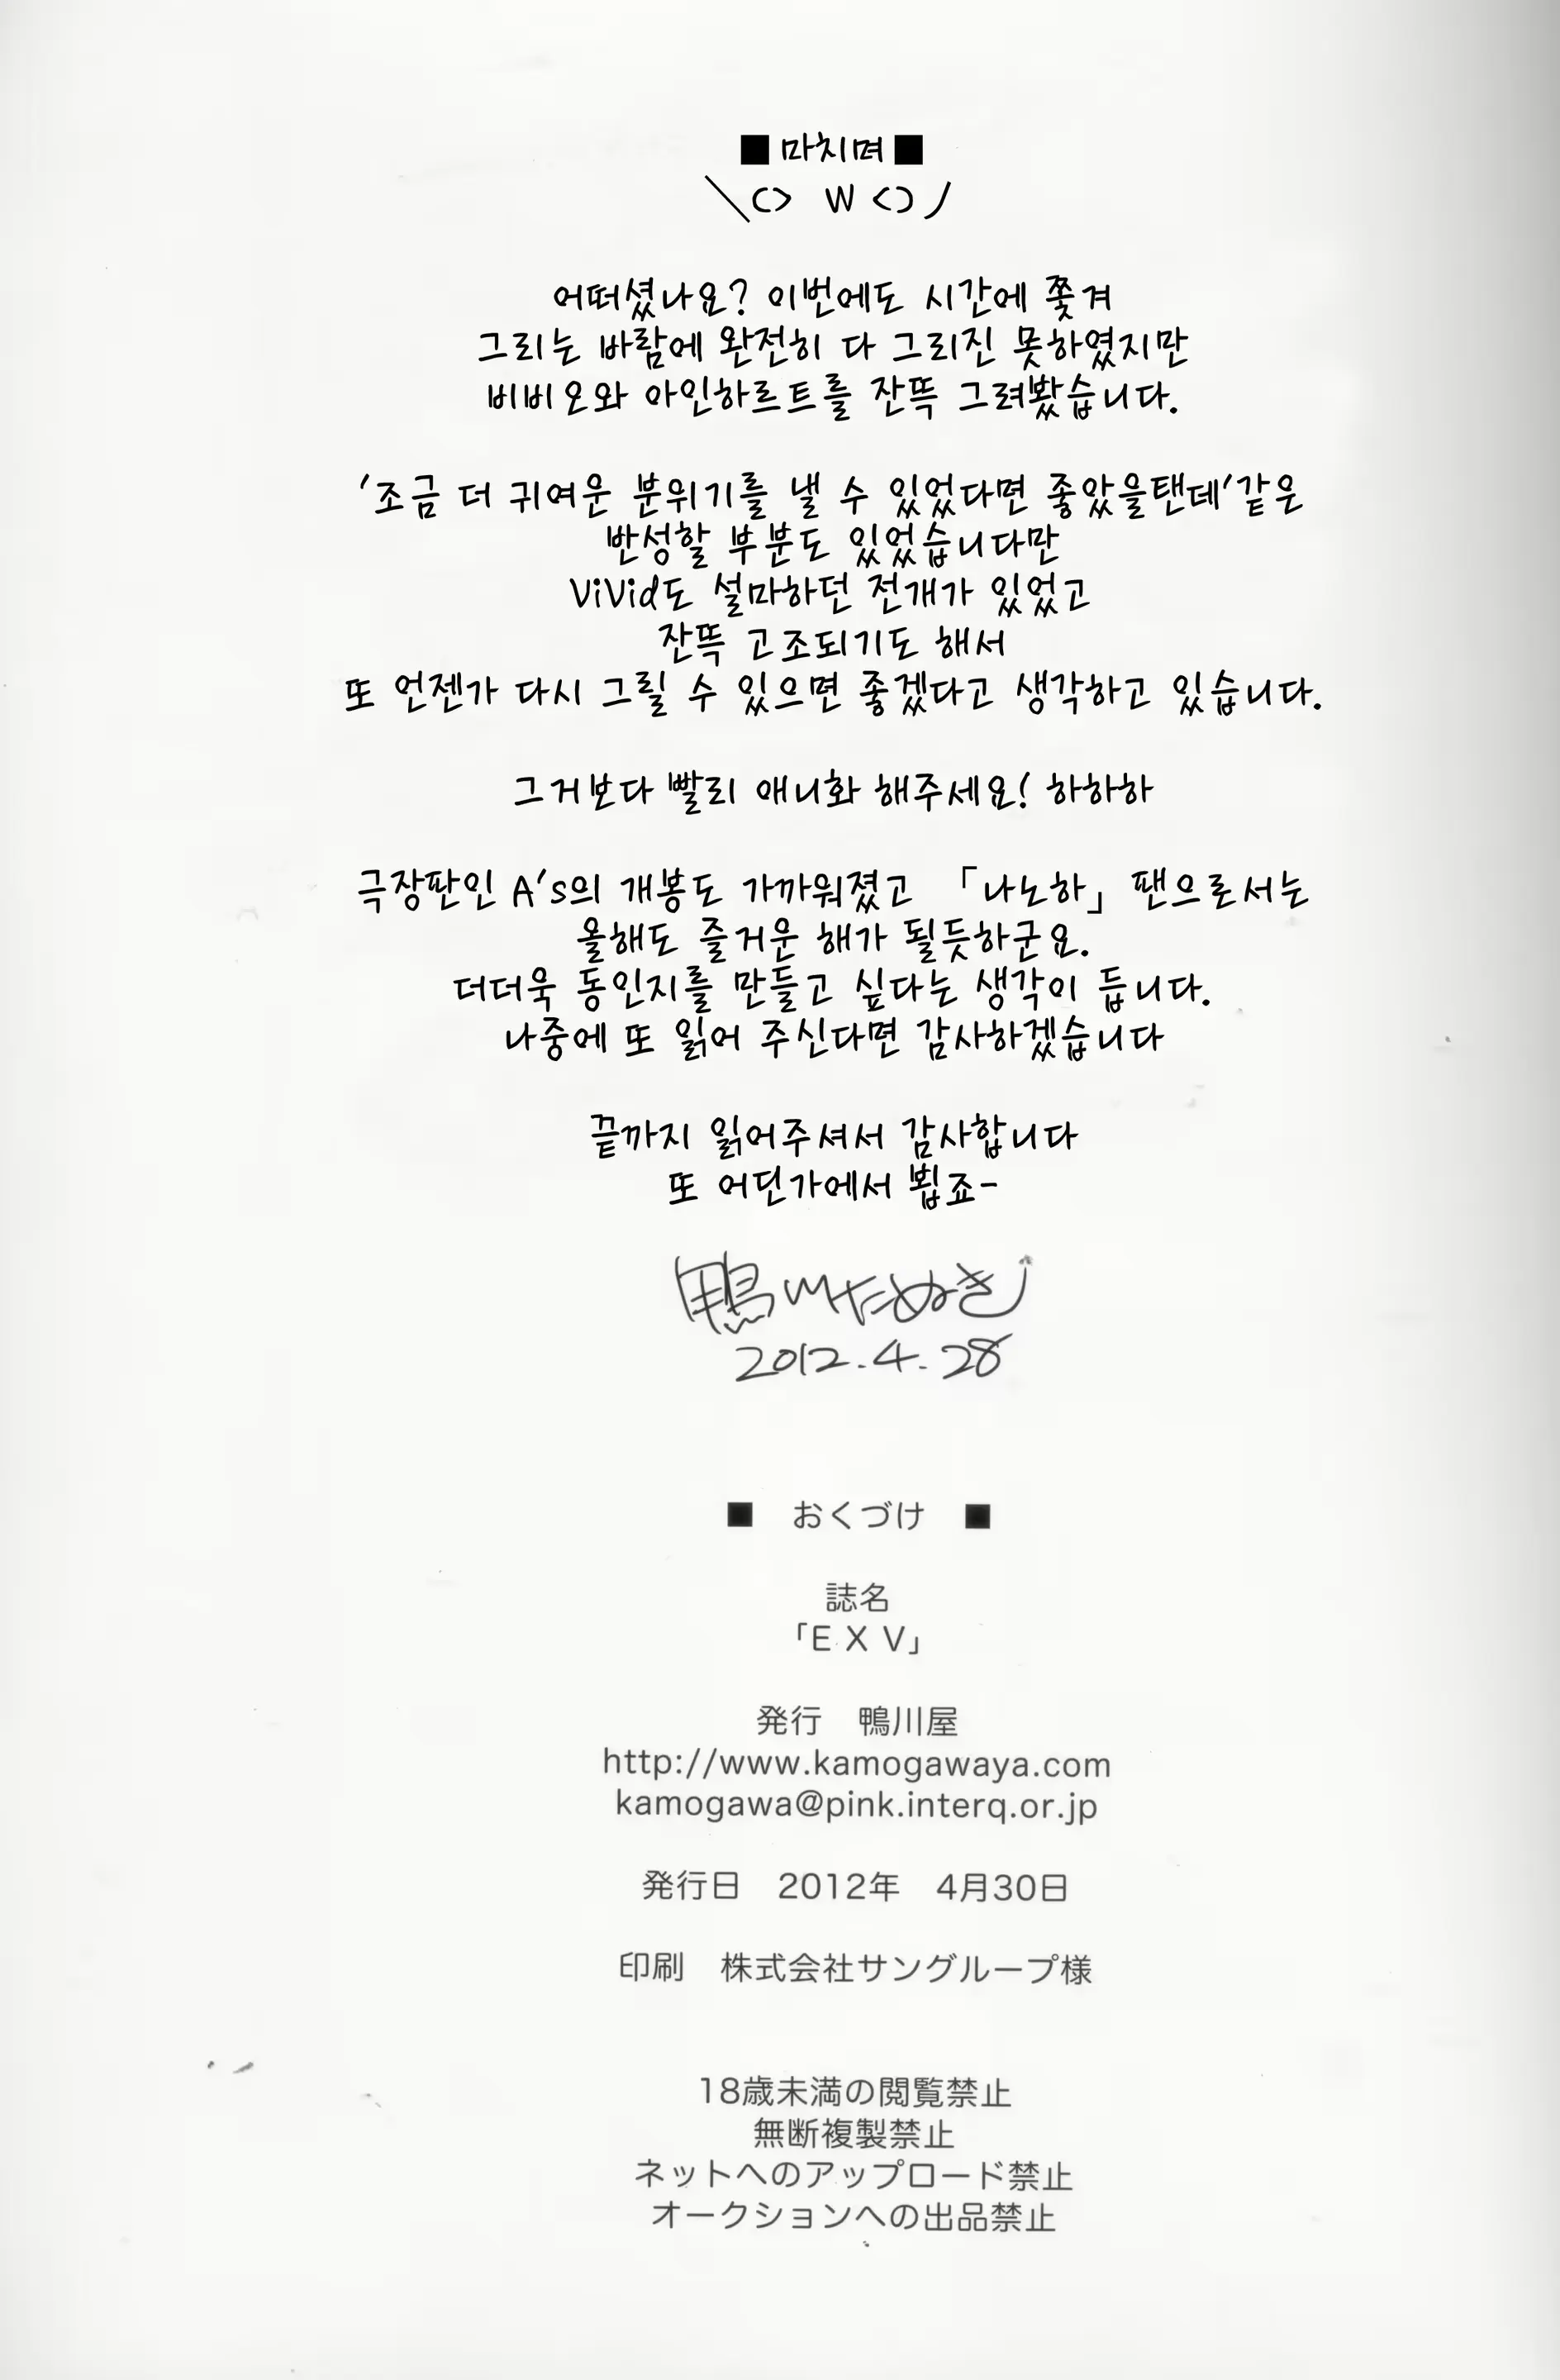 ■ 마치며 ■
＼(> W <)ノ
어떠셨나요? 이번에도 시간에 쫓겨
그리는 바람에 완전히 다 그리진 못하였지만
비비오와 아인하르트를 잔뜩 그려봤습니다.
'조금 더 귀여운 분위기를 낼 수 있었다면 좋았을탠데'같은
반성할 부분도 있었습니다만
ViVid도 설마하던 전개가 있었고
잔뜩 고조되기도 해서
또 언젠가 다시 그릴 수 있으면 좋겠다고 생각하고 있습니다.
그거보다 빨리 애니화 해주세요! 하하하
극장판인 A's의 개봉도 가까워졌고 「나노하」 팬으로서는
올해도 즐거운 해가 될듯하군요.
더더욱 동인지를 만들고 싶다는 생각이 듭니다.
나중에 또 읽어 주신다면 감사하겠습니다
끝까지 읽어주셔서 감사합니다
또 어딘가에서 뵙죠-
鴨川たぬき
2012.4.28
■ おくづけ ■
誌名
「E X V」
発行 鴨川屋
http://www.kamogawaya.com
kamogawa@pink.interq.or.jp
発行日 2012年 4月30日
印刷 株式会社サングループ様
18歳未満の閲覧禁止
無断複製禁止
ネットへのアップロード禁止
オークションへの出品禁止